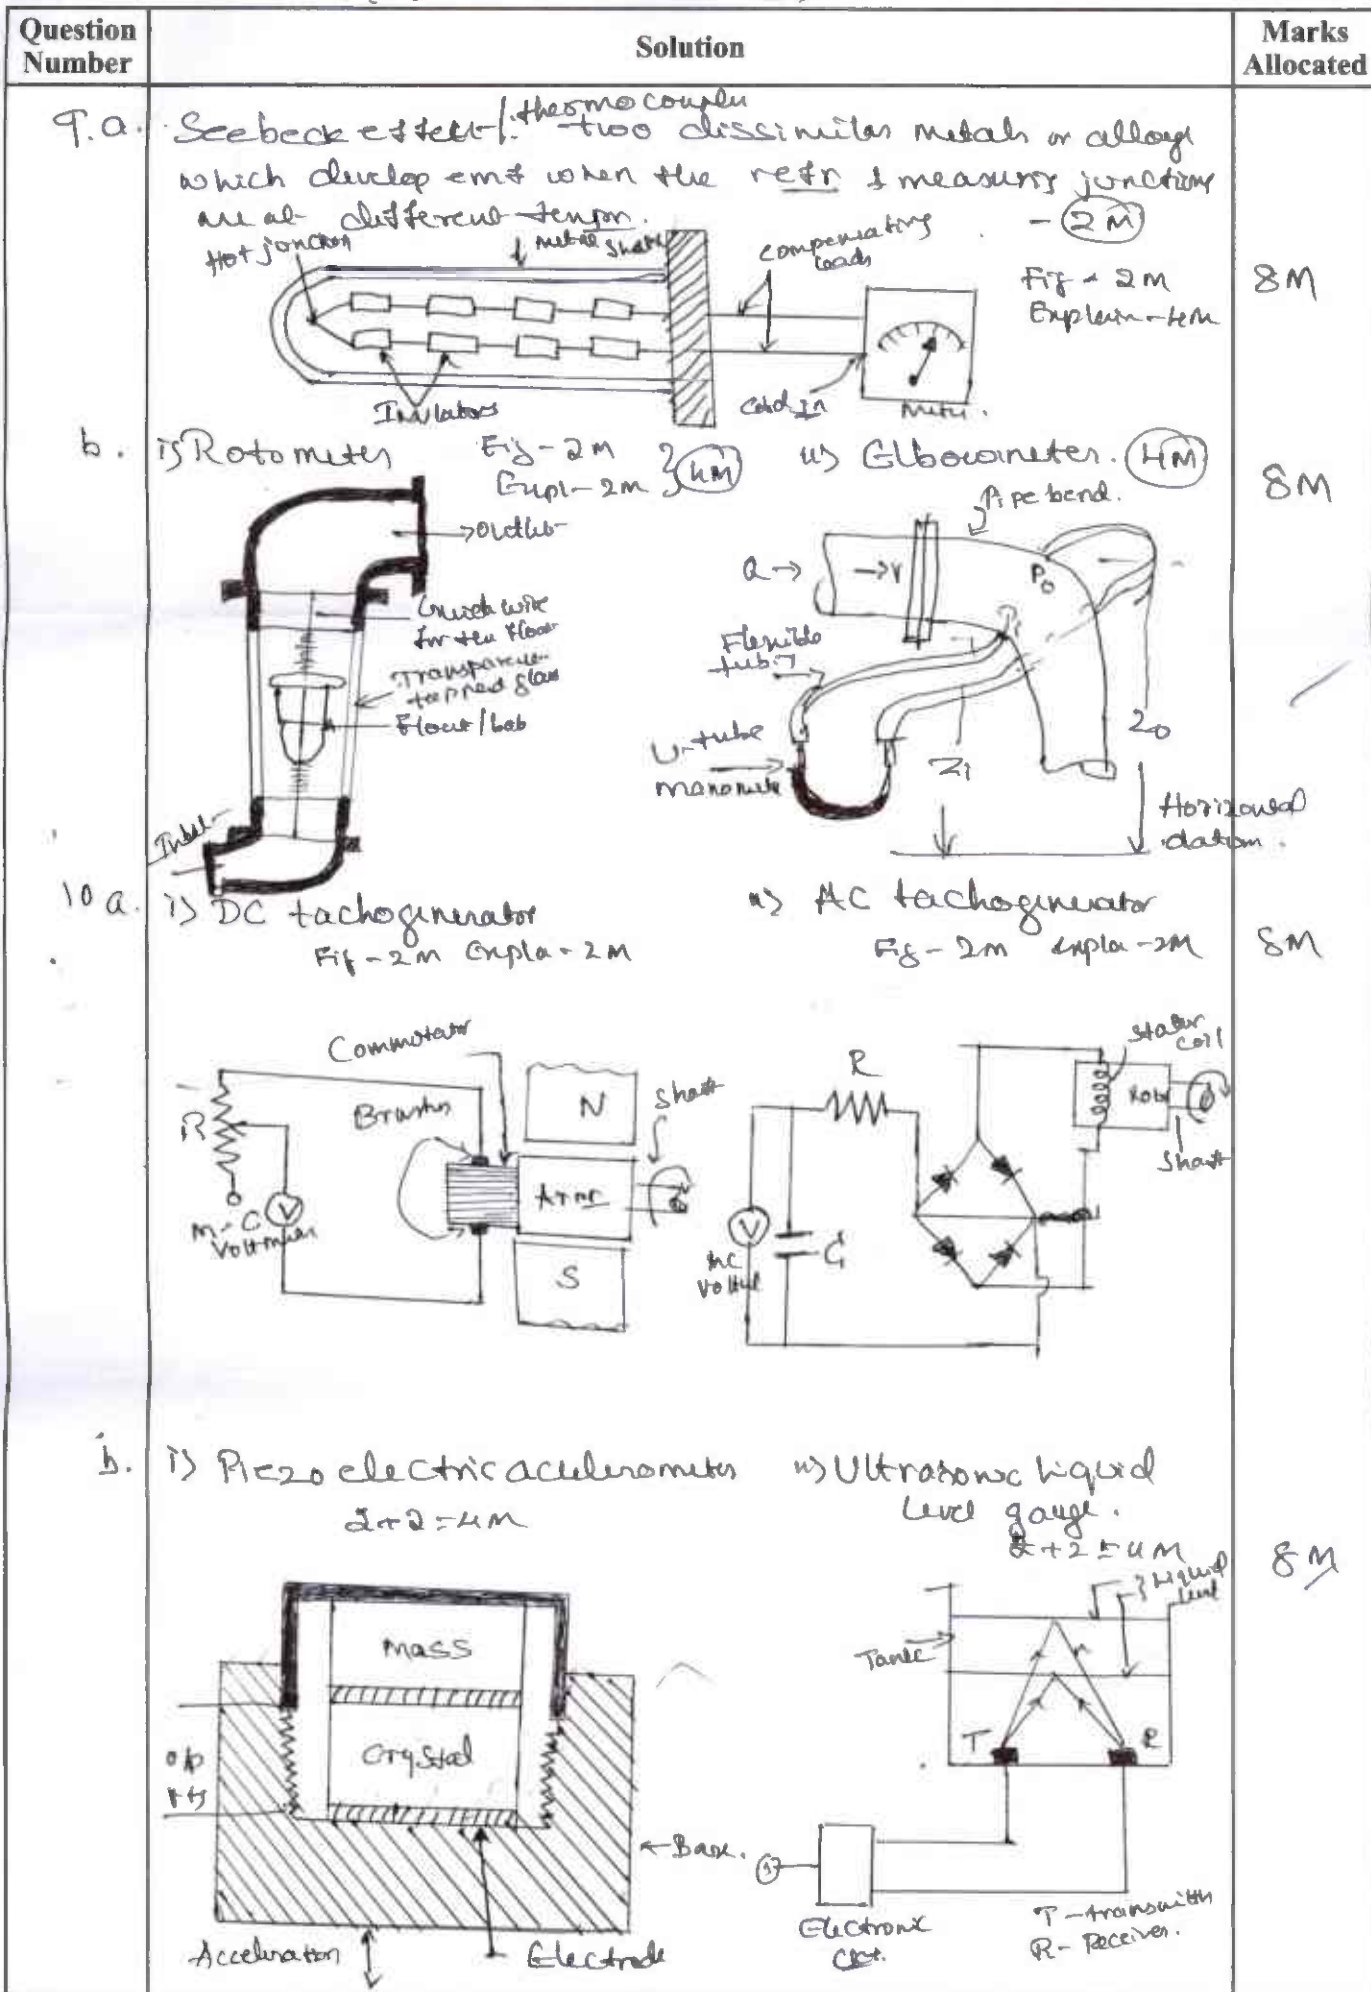 Question Number
Solution
Marks Allocated
9.a.
Seebeck effect /. thermocouple
two dissimilar metals or alloys
which develop emf when the refr & measuring junctions
are at different tempr.
- 2M
Hot junction
metal sheath
Compensating leads
Fig - 2M
Explain - 4M
8M
Insulators
Cold Jn
Meter.
b.
i) Rotometer
Fig - 2M
Expl - 2M
4M
ii) Elbowmeter.
4M
8M
Pipe bend.
Outlet
Guide wire
for the float
Transparent
tapped glass
Float/bob
Inlet
Q →
→ V
P0
Pi
Flexible
tubing
U-tube
manometer
Zi
Z0
Horizontal
datom.
10 a.
i) DC tachogenerator
Fig - 2M Expla - 2M
ii) AC tachogenerator
Fig - 2M expla - 2M
8M
Commutator
Brushes
N
Shaft
R
Arm
M-C
Voltmeter
V
S
R
Stator
coil
Rotor
Shaft
V
MC
C1
b.
i) Piezo electric accelerometer
2+2 = 4M
ii) Ultrasonic liquid
level gauge.
2+2 = 4M
8M
Mass
Crystal
o/p
Base.
Acceleration
Electrode
Liquid
level
Tank
T
R
Electronic
Ckt.
T - transmitter
R - Receiver.